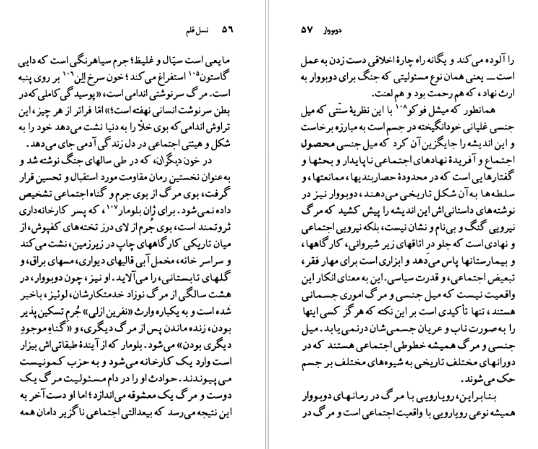 ۵۶ نسل قلم
مایعی است سیّال و غلیظ؛ جرم سیاهرنگی است که دایی
گاستون۱۰۵ استفراغ می‌کند؛ خون سرخ اِلن۱۰۶ بر روی پنبه
است. مرگ سرنوشتی اندامی است، «پوسیدگی کاملی که در
بطن سرنوشت انسانی نهفته است؛» امّا فراتر از هر چیز، این
تراوش اندامی که بوی خلأ را به دنیا نشت می‌دهد خود را به
شکل و هیئتی اجتماعی در دل زندگی آدمی جای می‌دهد.
در خون دیگران، که در طی سالهای جنگ نوشته شد و
به‌عنوان نخستین رمان مقاومت مورد استقبال و تحسین قرار
گرفت، بوی مرگ از بوی جرم و گناه اجتماعی تشخیص
داده نمی‌شود. برای ژان بلومار،۱۰۷ که پسر کارخانه‌داری
ثروتمند است، بوی جُرم از لای درز تخته‌های کفپوش، از
میان تاریکی کارگاههای چاپ در زیرزمین، نشت می‌کند
و سراسر خانه، مخمل آبی قالیهای دیواری، مسهای براق، و
گلهای تابستانی، را می‌آلاید. او نیز، چون دوبووار، در
هشت سالگی از مرگ نوزاد خدمتکارشان، لوئیز، باخبر
شده است و به یکباره وارث «نفرین ازلی» جُرمِ تسکین‌پذیر
بودن، زنده ماندن پس از مرگ دیگری، و «گناهِ موجودِ
دیگری بودن» می‌شود. بلومار که از آیندهٔ طبقاتی‌اش بیزار
است وارد یک کارخانه می‌شود و به حزب کمونیست
می‌پیوندد. حوادث او را در دام مسئولیت مرگ یک
دوست و مرگ یک معشوقه می‌اندازد؛ اما او دست آخر به
این نتیجه می‌رسد که بیعدالتی اجتماعی ناگزیر دامان همه
دوبووار ۵۷
را آلوده می‌کند و یگانه راه چارهٔ اخلاقی دست زدن به عمل
است — یعنی همان نوع مسئولیتی که جنگ برای دوبووار به
ارث نهاد، که هم رحمت بود و هم لعنت.
همانطور که میشل فوکو۱۰۸ با این نظریهٔ سنّتی که میل
جنسی غلیانی خودانگیخته در جسم است به مبارزه برخاست
و این اندیشه را جایگزین آن کرد که میل جنسی محصول
اجتماع و آفریدهٔ نهادهای اجتماعی ناپایدار و بحثها و
گفتارهایی است که در محدودهٔ حصاربندیها، ممانعتها، و
سلطه‌ها به آن شکل تاریخی می‌دهند، دوبووار نیز در
نوشته‌های داستانی‌اش این اندیشه را پیش کشید که مرگ
نیرویی گنگ و بی‌نام و نشان نیست، بلکه نیرویی اجتماعی
و نهادی است که جلو در اتاقهای زیر شیروانی، کارگاهها،
و بیمارستانها پاس می‌دهد و ابزاری است برای مهار فقر،
تبعیض اجتماعی، و قدرت سیاسی. این به معنای انکار این
واقعیت نیست که میل جنسی و مرگ اموری جسمانی
هستند، تنها تأکیدی است بر این نکته که هرگز کسی اینها
را به‌صورت ناب و عریان جسمی‌شان درنمی‌یابد. میل
جنسی و مرگ همیشه خطوطی اجتماعی هستند که در
دورانهای مختلف تاریخی به شیوه‌های مختلف بر جسم
حک می‌شوند.
بنابراین، رویارویی با مرگ در رمانهای دوبووار
همیشه نوعی رویارویی با واقعیت اجتماعی است و مرگ در